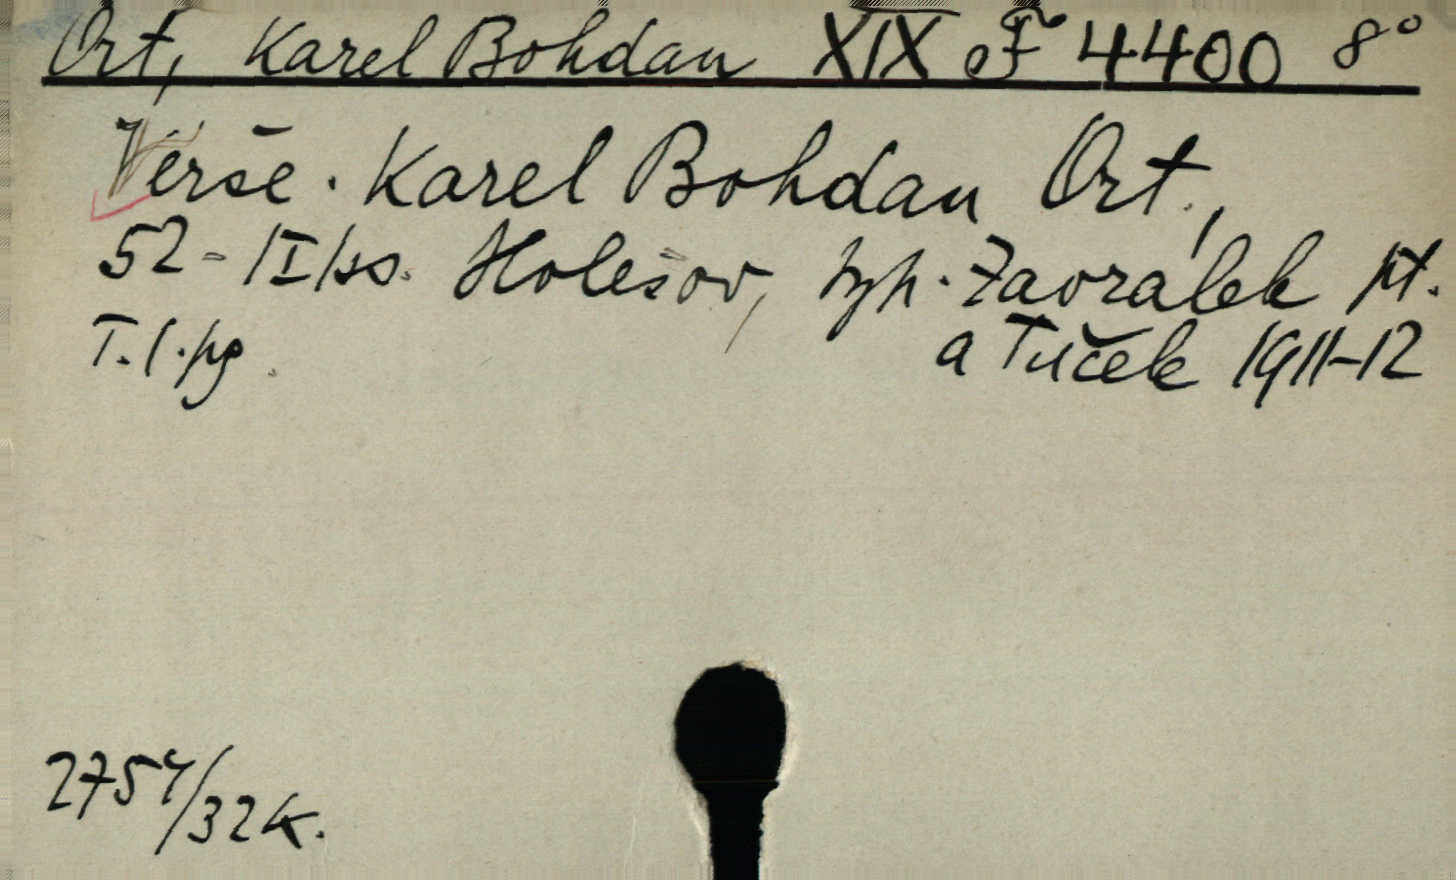 Ort, Karel Bohdan XIX F 4400 8°
Verše. Karel Bohdan Ort.,
52-/I/ss. Holešov, typ. Zavrálek pt.
T.l.pg. a Tuček 1911-12
2754/32K.